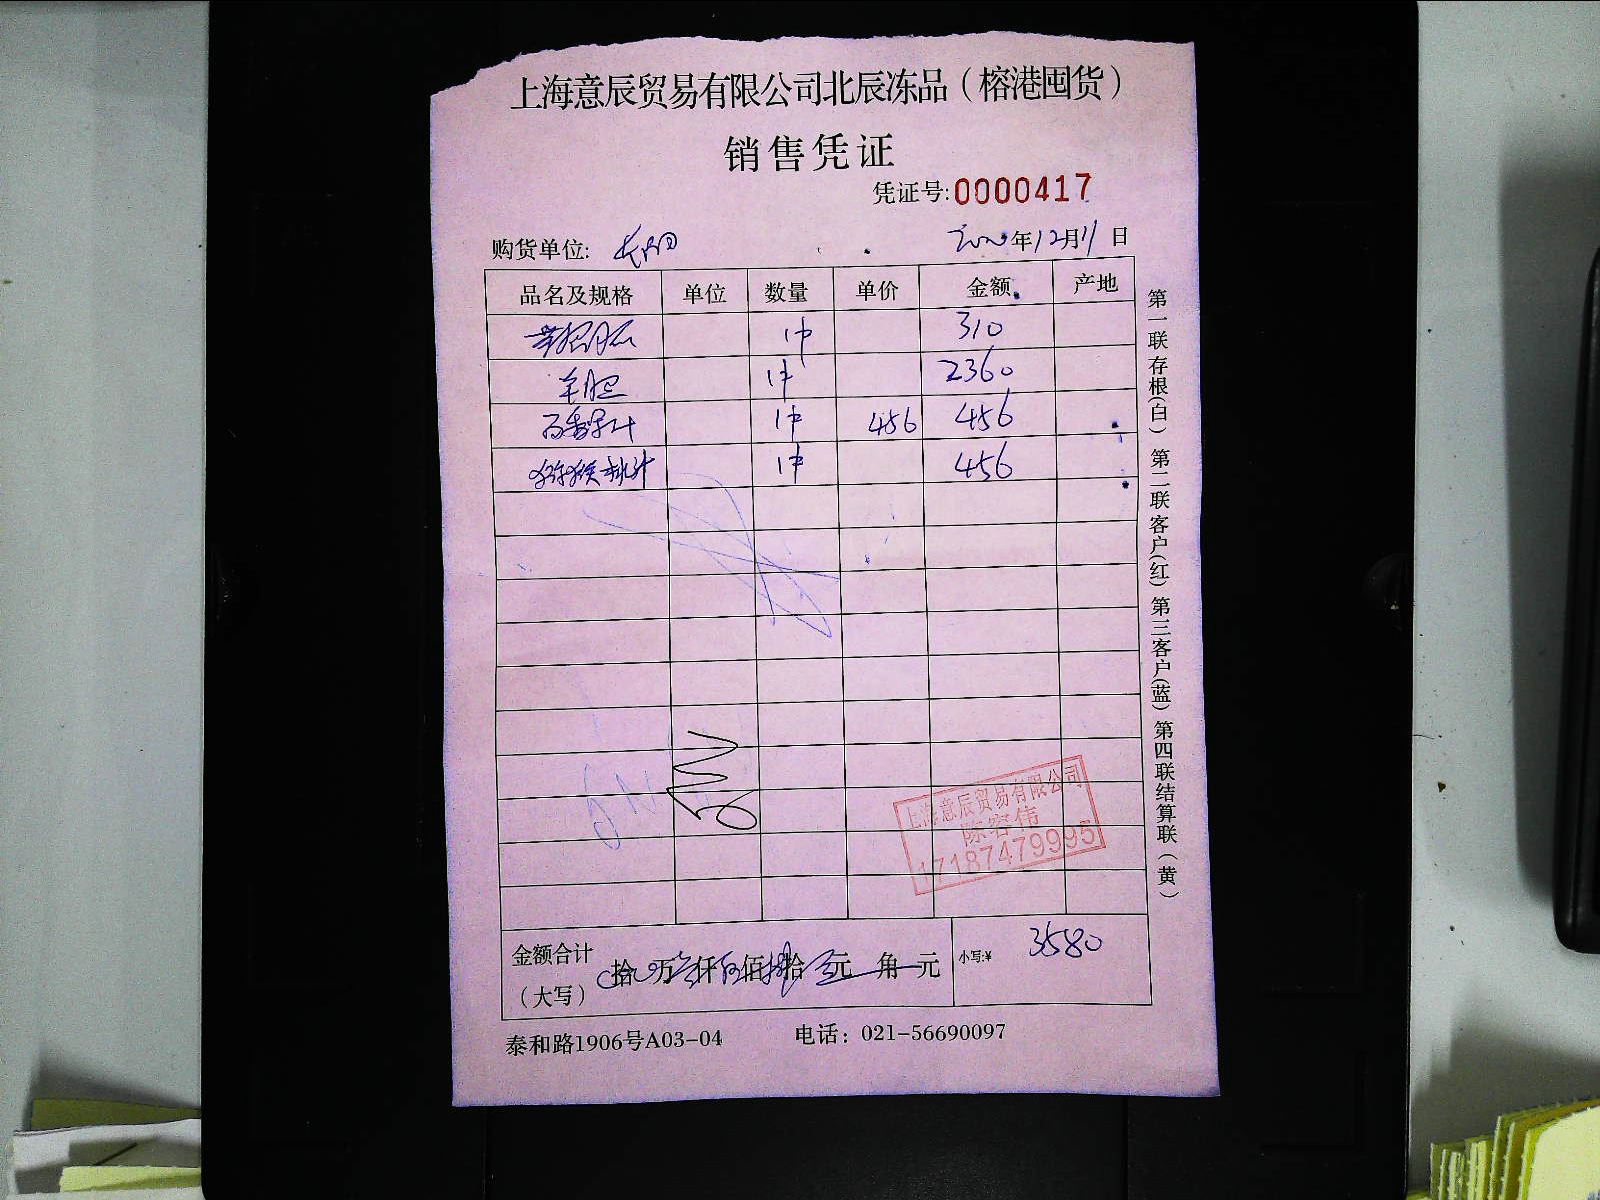 上海意辰贸易有限公司北辰冻品（榕港囤货）
销售凭证
凭证号:0000417
购货单位:
2020年12月11日
品名及规格 单位 数量 单价 金额 产地
1件 310
羊肚 1件 2360
百香果汁 1件 456 456
猕猴桃汁 1件 456
上海意辰贸易有限公司
陈容伟
17187479995
金额合计（大写） 拾 万叁仟伍佰捌拾 元 角 元 小写:¥ 3580
泰和路1906号A03-04 电话：021-56690097
第一联存根(白) 第二联客户(红) 第三客户(蓝) 第四联结算联（黄）